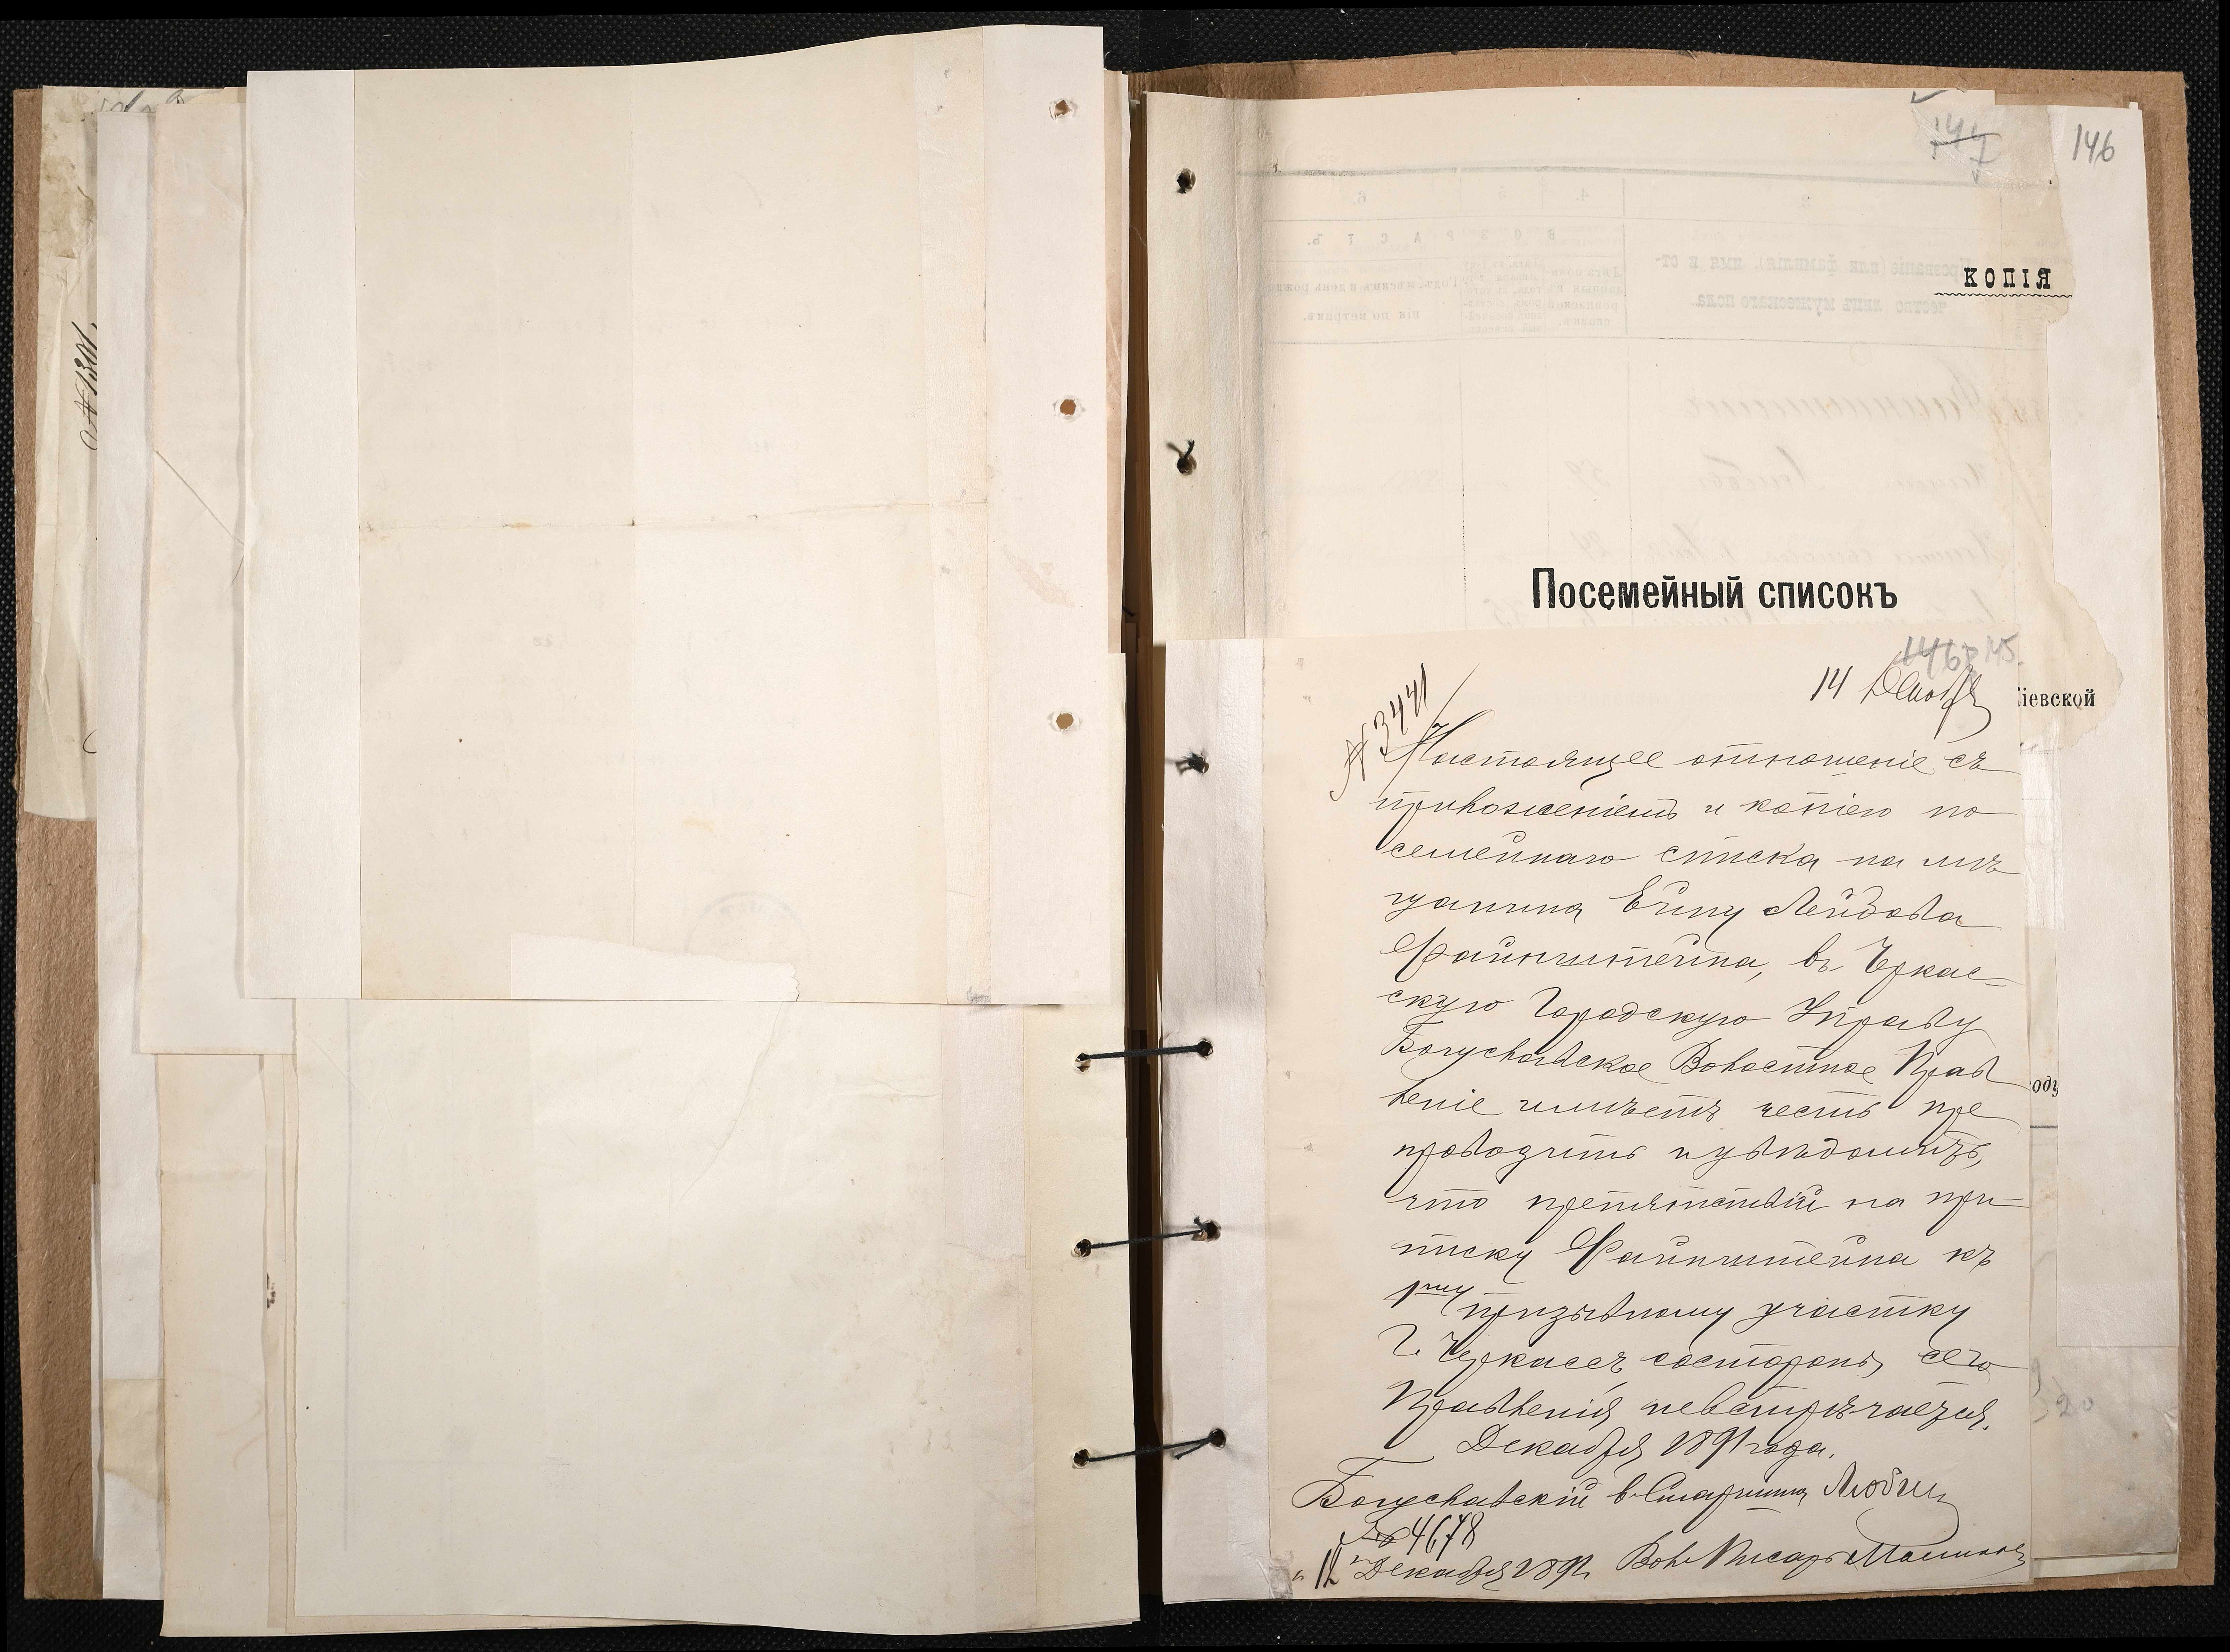 № 1301.
144
146
КОПІЯ
Посемейный списокъ
146 145.
14 Декабр
іевской
№ 3441
Настоящее отношеніе съ
приложеніемъ и копіею по
семейнаго списка на мѣ
щанина Ейну Лейбова
Файнштейна, въ Черкас-
скую Городскую Управу
Богуславское Волостное Прав
леніе имѣетъ честь пре
проводить и увѣдомить,
что препятствій на при-
писку Файнштейна къ
1му призывному участку
Г. Черкассъ состороны сего
Правленія невстрѣчается.
Декабря 1891 года.
Богуславскій в. Старшина
№ 4678
"12" Декабря 1891 Вол. Писарь